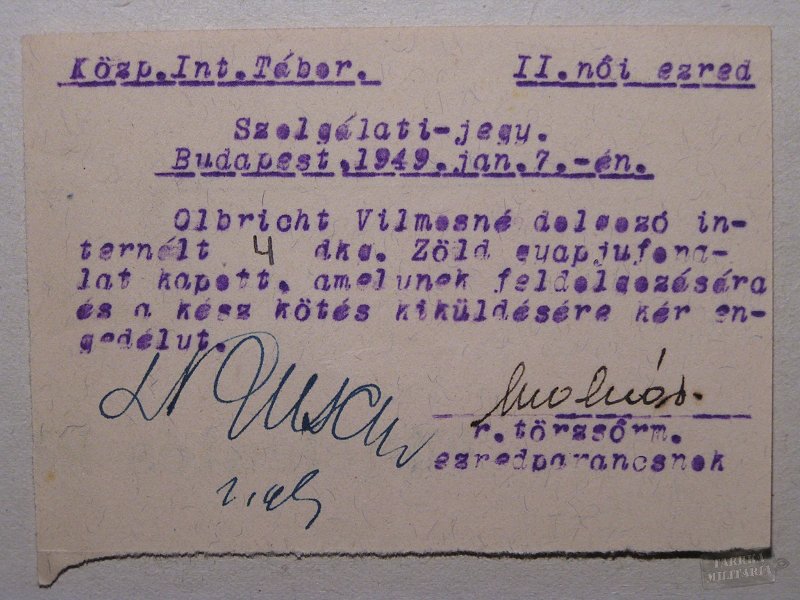 Közp.Int.Tábor. II.női ezred
Szolgálati-jegy.
Budapest,1949.jan.7.-én.
Olbricht Vilmosné dolgozó in-
ternált 4 dkg. Zöld gyapjufona-
lat kapott, amelynek feldolgozására
és a kész kötés kiküldésére kér en-
gedélyt.
Molnár
r.törzsőrm.
ezredparancsnok
TARKKA
MILITARIA